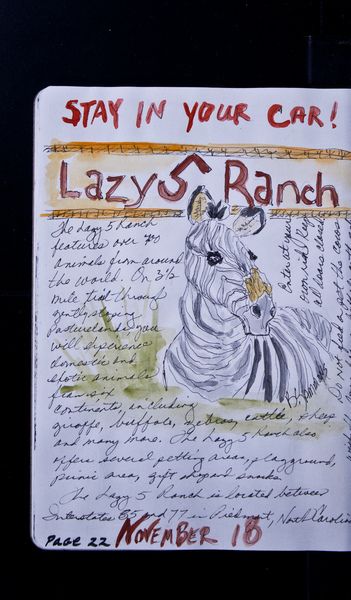 STAY IN YOUR CAR!
Lazy 5 Ranch
The Lazy 5 Ranch
features over
animals from around
the world. On 3 1/2
mile, trek through
gently sloping
pasturelands, you
will experience
domestic and
exotic animals
from six
continents, including
giraffe, buffalo, zebras, cattle, sheep
and many more. The Lazy 5 Ranch also
offers several petting areas, playground,
picnic area, gift shop and snacks.
The Lazy 5 Ranch is located between
Interstates 85 and 77 in Piedmont, North Carolin
Page 22 NOVEMBER 18
Enter at your
own risk! Keep
all doors closed
Do not feed